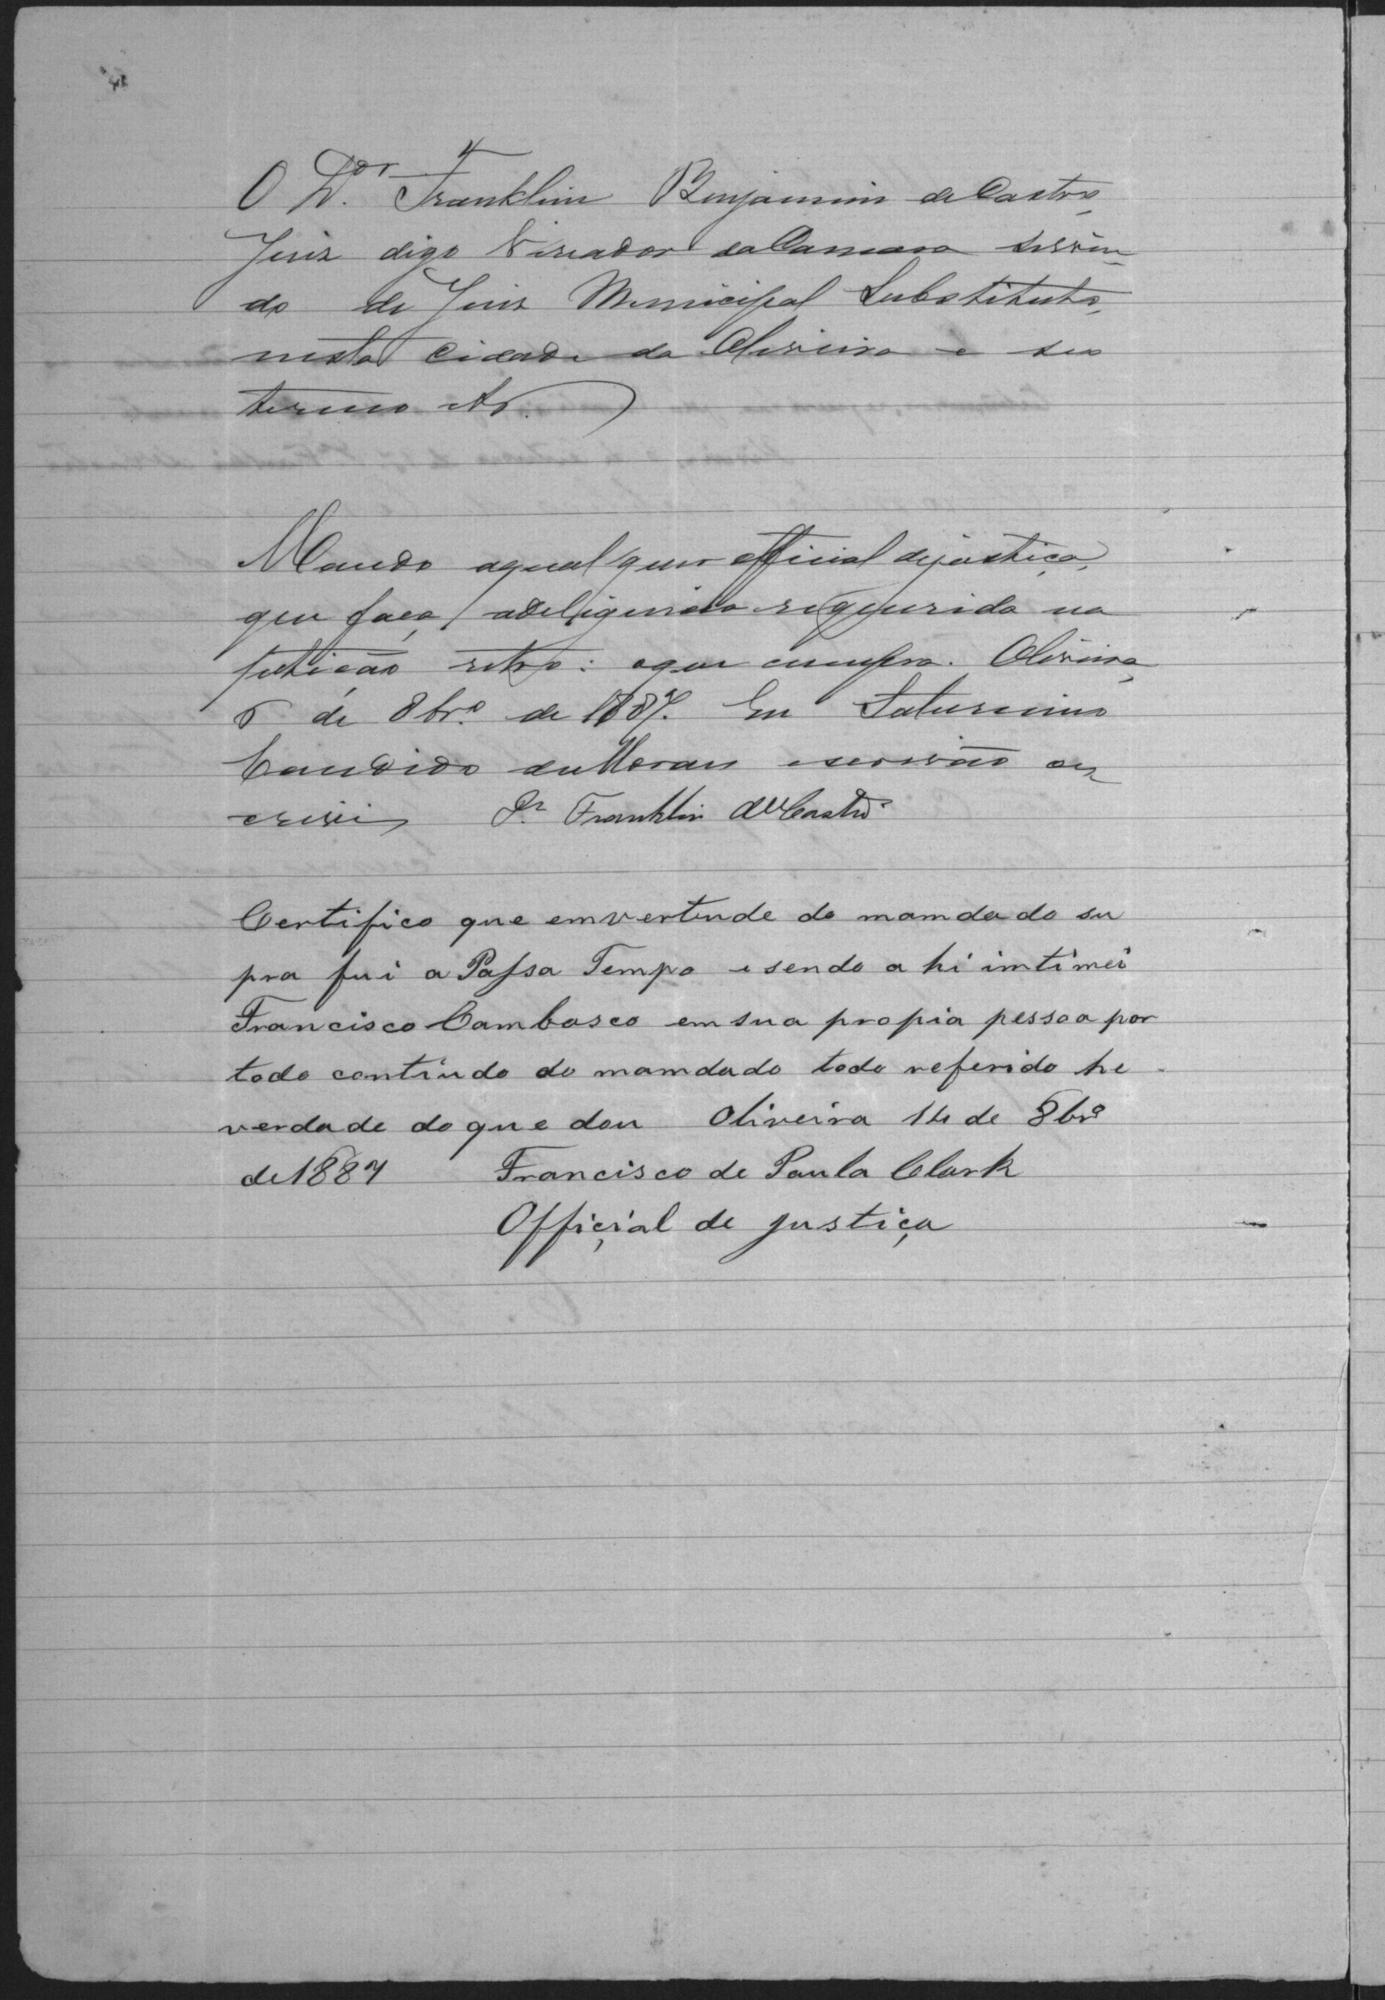 O Dor. Franklin Benjamim de Castro,
Juiz digo Veriador da Camara servin
do de Juiz Municipal Substituto,
nesta Cidade da Oliveira e seo
termo etc.
Mando aqualquer official dejustiça,
que faça adeligencia requerida na
petição retro: oque cumpra. Oliveira,
de 8brº de 1887. Eu Saturnino
Candido deMoraes escrivão oes
crevi Dr Franklin de Castro
Certifico que emvertude do mamdado su
pra fui a Passa Tempo e sendo a hi imtimei
Francisco Cambasco em sua propia pessoa por
todo contiudo do mamdado todo referido he
verdade do que dou Oliveira 14 de 8brº
de 1887 Francisco de Paula Clark
Offiçial de justiça